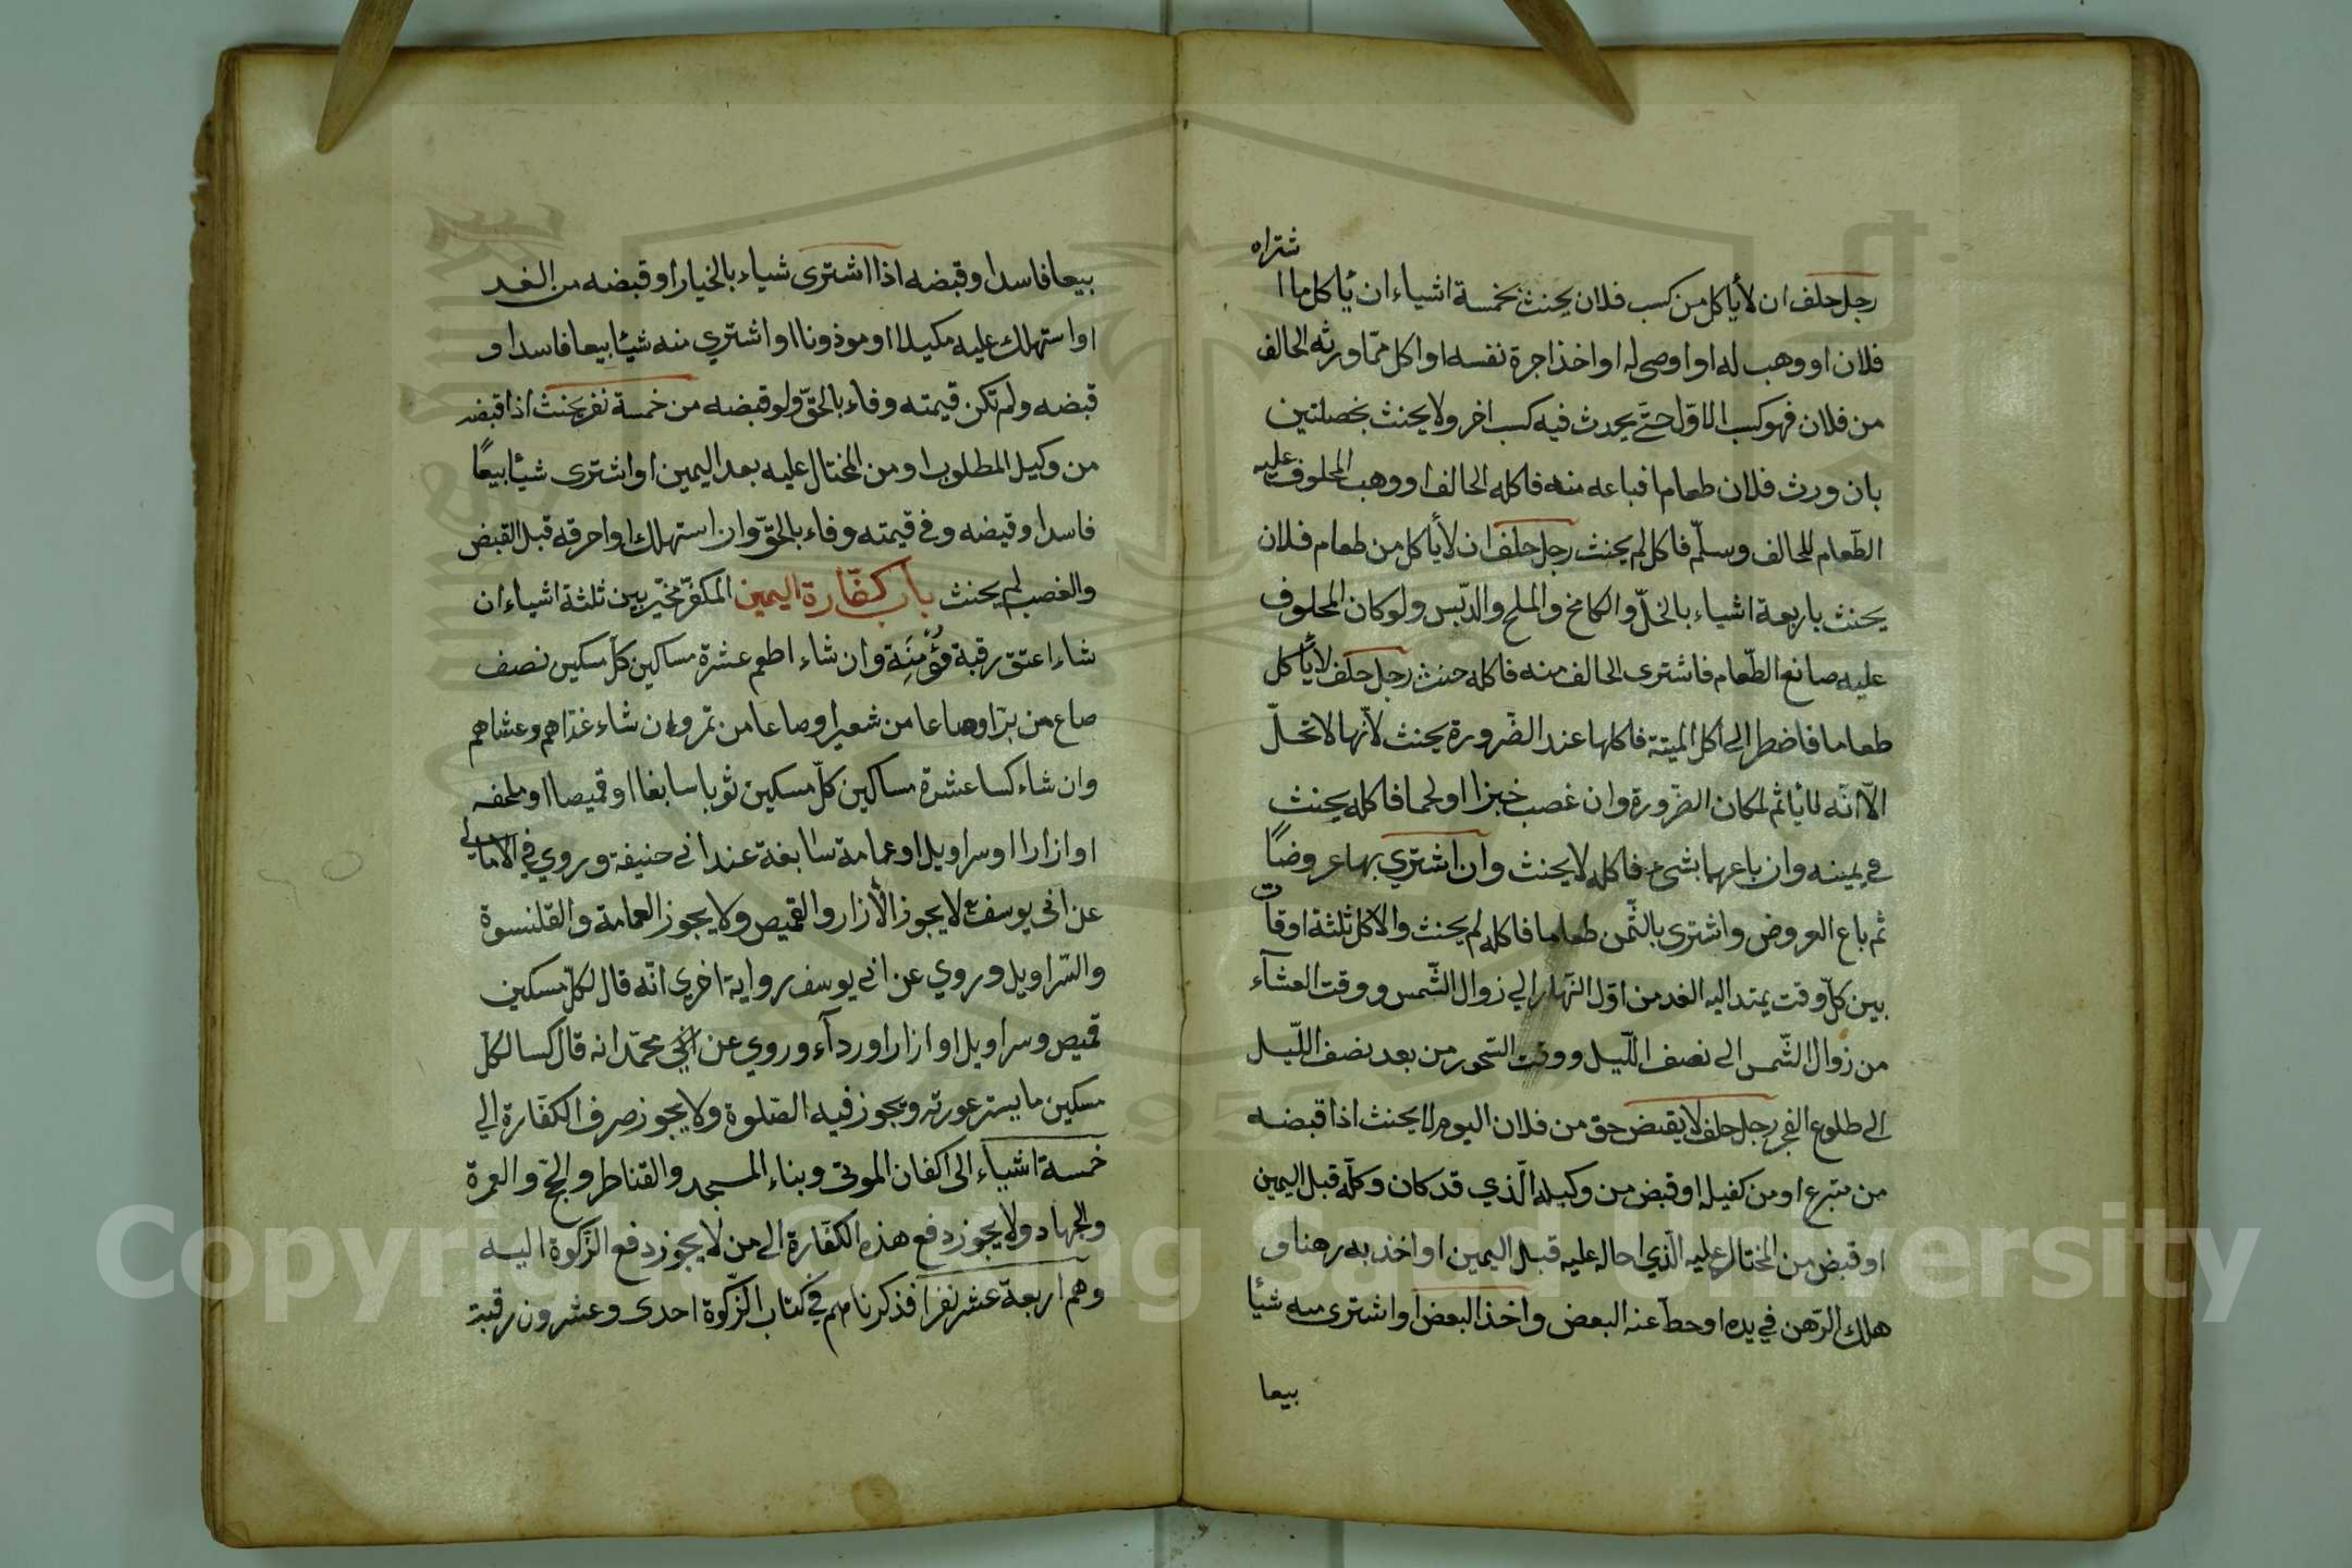 رجل حلف ان لأياكل من كسب فلان يحنث بخمسة اشياء ان يأكل ما اشتراه
فلان او وهب له او اوصى له او اخذ اجرة نفسه او اكل ممّا ورثه الحالف
من فلان فهو كسب الاوّل حتّى يحدث فيه كسب اخر ولا يحنث بخصلتين
بان ورث فلان طعاما فباعه منه فاكله الحالف او وهب المحلوف عليه
الطّعام للحالف وسلّم فاكل لم يحنث رجل حلف ان لأياكل من طعام فلان
يحنث باربعة اشياء بالخلّ والكامخ والملح والدّبس ولو كان المحلوف
عليه صانع الطّعام فاشترى الحالف منه فاكله حنث رجل حلف لايأكل
طعاما فاضطر الى اكل الميتة فاكلها عند الضّرورة يحنث لأنّها لا تحلّ
الّا انّه لا يأثم لمكان الضّرورة وان غصب خبزا او لحما فاكله يحنث
في يمينه وان باعهما بشئ فاكله لا يحنث وان اشتري بها عروضًا
ثم باع العروض واشترى بالثّمن طعاما فاكله لم يحنث والاكل ثلثة اوقات
بين كلّ وقت يمتد اليه الغد من اوّل النّهار الي زوال الشّمس ووقت العشآء
من زوال الشّمس الى نصف اللّيل ووقت السّحور من بعد نصف اللّيل
الى طلوع الفجر رجل حلف لا يقبض حق من فلان اليوم لا يحنث اذا قبضه
من متبرع او من كفيله او قبض من وكيله الّذي قد كان وكلّه قبل اليمين
او قبض من المحتال عليه الّذي احاله عليه قبل اليمين او اخذ به رهنا و
هلك الرّهن في يده او حطّ عنه البعض واخذ البعض او اشترى منه شيأ
بيعا
بيعا فاسدا وقبضه اذا اشترى شياء بالخيار او قبضه من الغد
او استهلك عليه مكيلا او موذونا او اشتري منه شيئا بيعا فاسدا و
قبضه ولم تكن قيمته وفاء بالحقّ ولو قبضه من خمسة نفر يحنث اذا قبضه
من وكيل المطلوب او من المحتال عليه بعد اليمين او اشترى شيئا بيعًا
فاسدا وقبضه وفي قيمته وفاء بالحقّ وان استهلك او احرقه قبل القبض
والغصب لم يحنث باب كفّارة اليمين المكفّر مخيّر بين ثلثة اشياء ان
شاء اعتق رقبة مؤمنة وان شاء اطعم عشرة مساكين كلّ مسكين نصف
صاع من برّ او صاعا من شعير او صاعا من تمر وان شاء غدّاهم وعشاهم
وان شاء كسا عشرة مساكين كلّ مسكين ثوبا سابغا او قميصا او ملحفه
او ازارا او سراويل او عمامة سابغة عند ابي حنيفة وروي في الامالي
عن ابي يوسف لا يجوز الأزار والقميص ولا يجوز العمامة والقلنسوة
والسّراويل وروي عن ابي يوسف رواية اخرى انّه قال لكلّ مسكين
قميص وسراويل او ازار او ردآء وروي عن محمّد انه قال كسا لكلّ
مسكين ما يستر عورته ويجوز فيه الصّلوة ولا يجوز صرف الكفّارة الي
خمسة اشيآء الى اكفان الموتى وبناء المسجد والقناطر والحجّ والعمرة
والجهاد ولا يجوز دفع هذه الكفّارة الى من لا يجوز دفع الزّكوة اليه
وهم اربعة عشر نفرا فذكرناهم في كتاب الزّكوة احدى وعشرون رقبة
Copyright © King Saud University